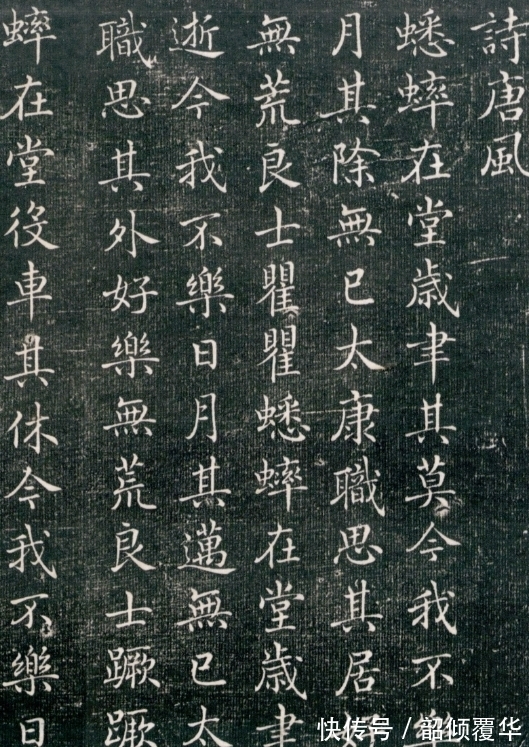 詩唐風
蟋蟀在堂歲聿其莫今我不樂
月其除無已太康職思其居好
無荒良士瞿瞿蟋蟀在堂歲聿
逝今我不樂日月其邁無已太
職思其外好樂無荒良士蹶蹶
蟀在堂役車其休今我不樂日
快传号 / 韶倾覆华